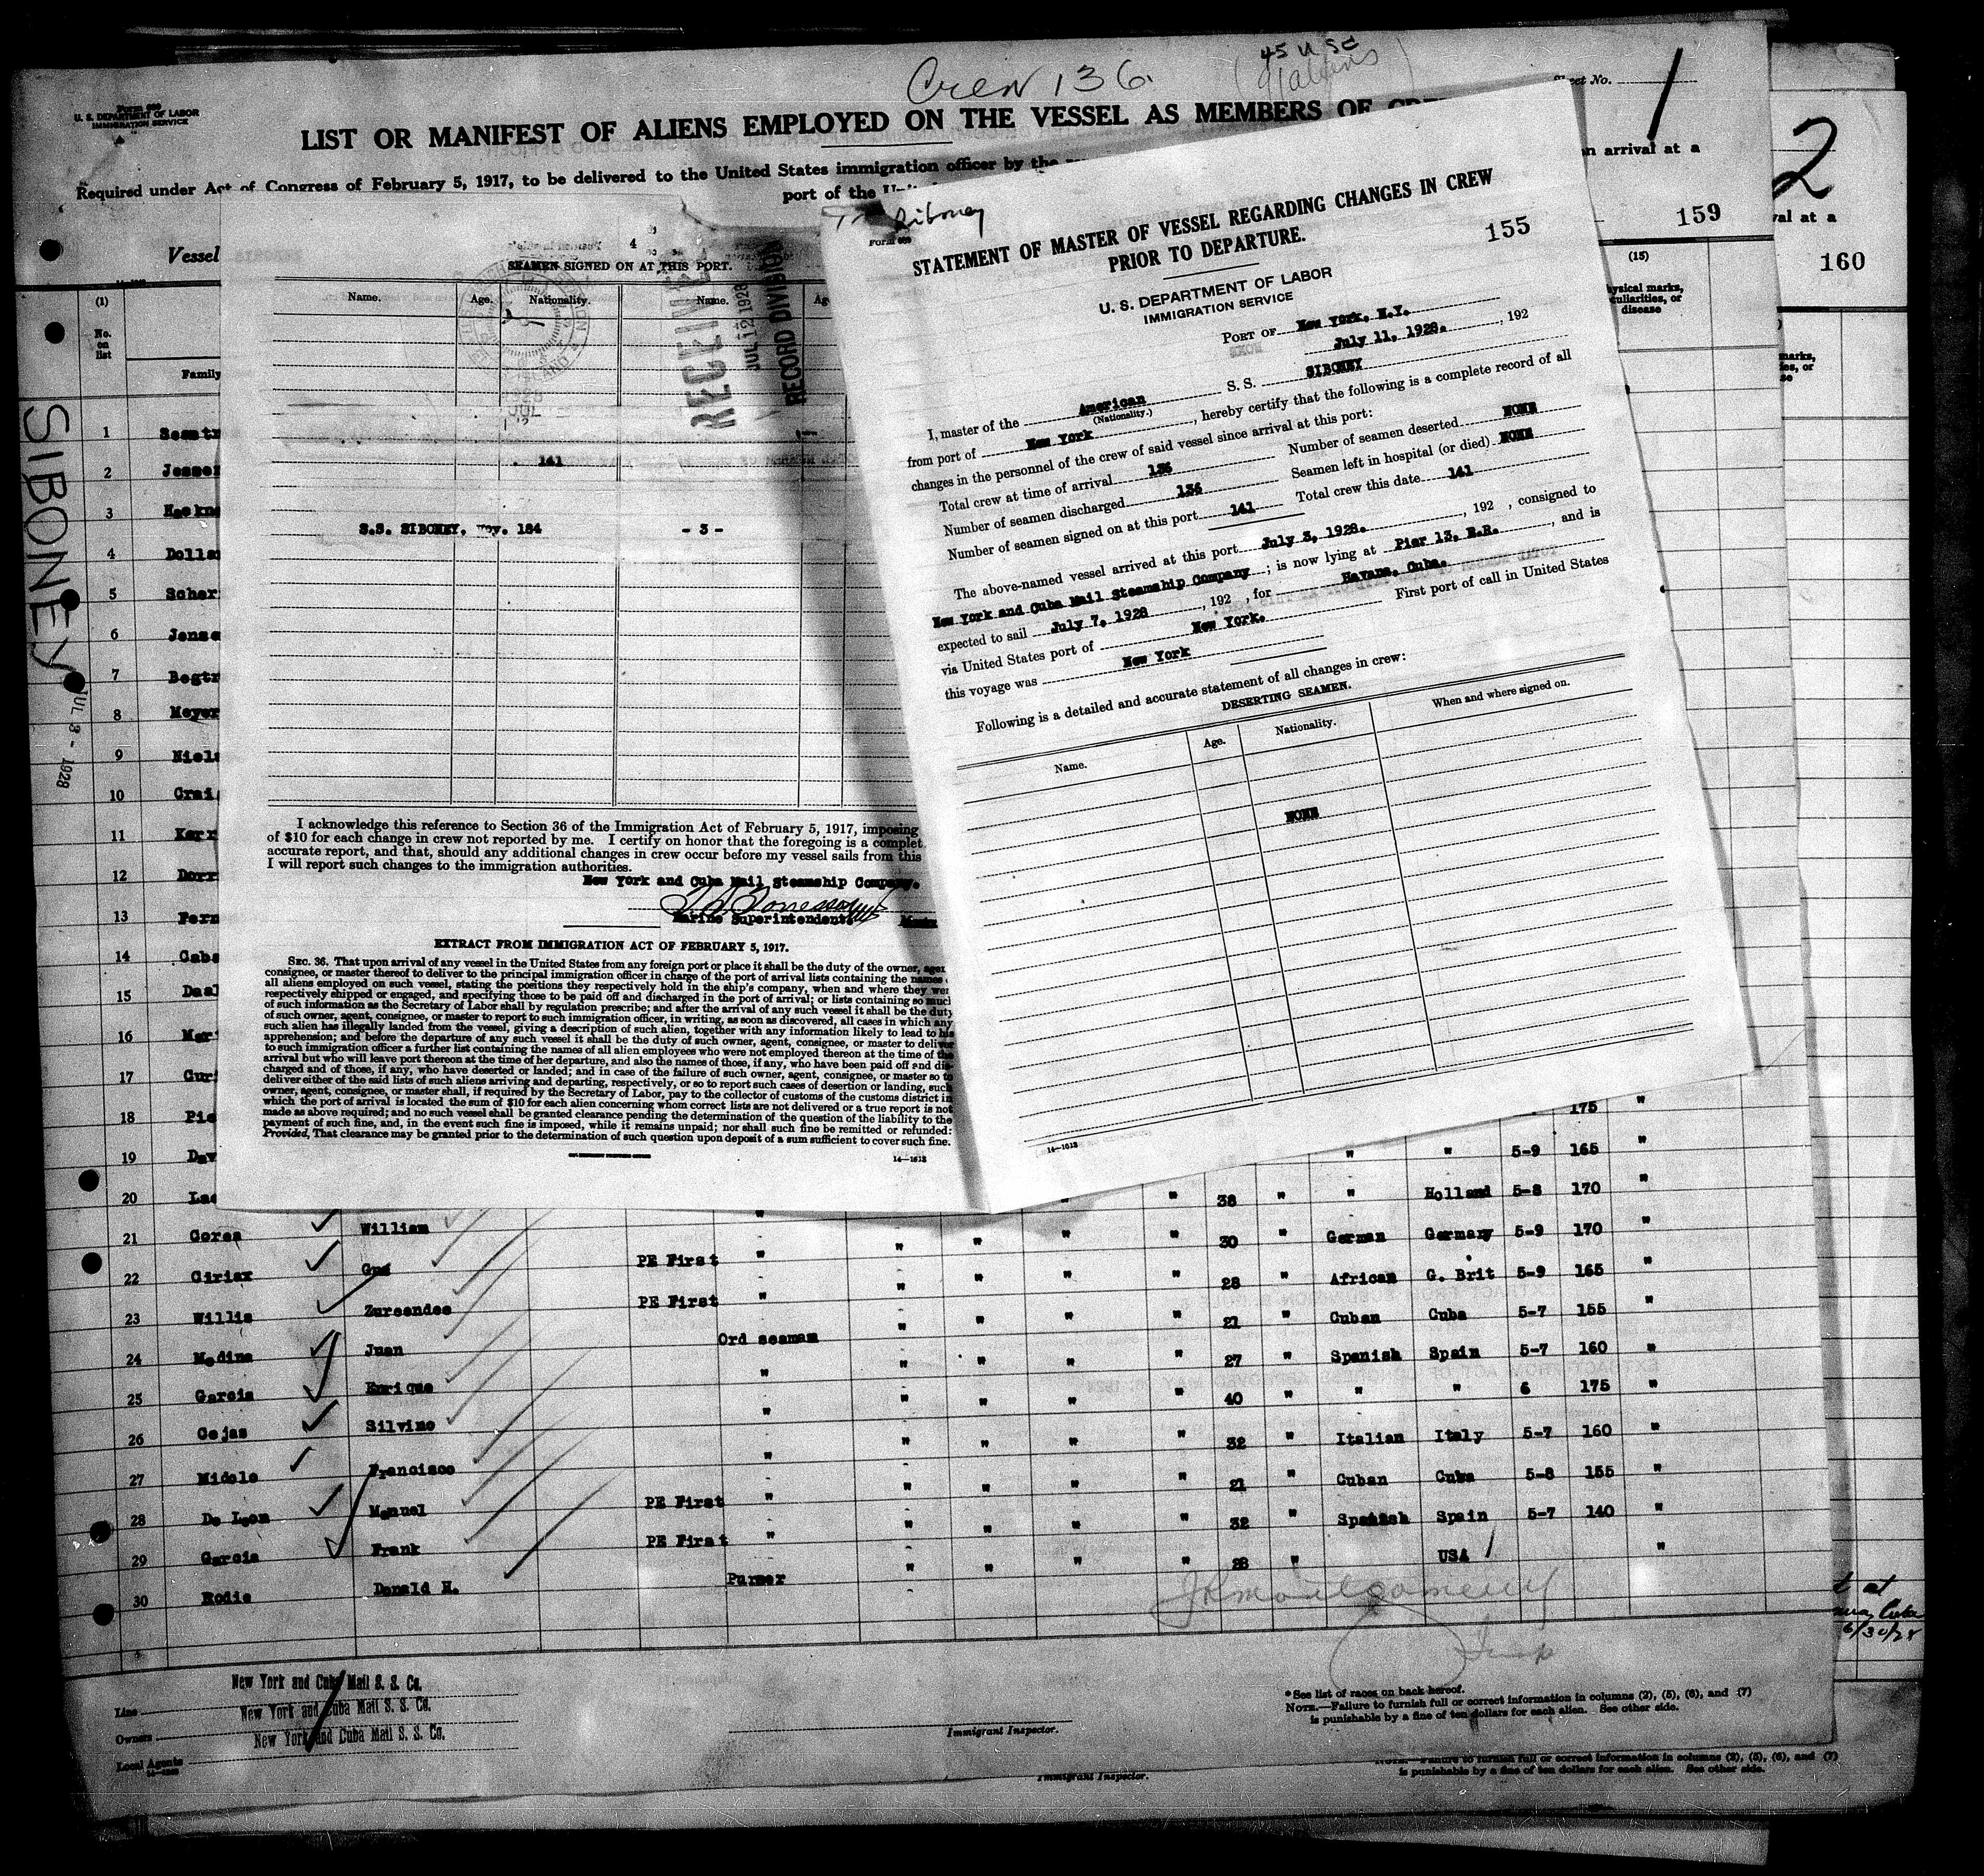 Crew 136.
45 USC
Form 689
U. S. DEPARTMENT OF LABOR
IMMIGRATION SERVICE
Sheet No. 1
LIST OR MANIFEST OF ALIENS EMPLOYED ON THE VESSEL AS MEMBERS OF CREW
Required under Act of Congress of February 5, 1917, to be delivered to the United States immigration officer by the
on arrival at a
port of the
Vessel
159
2
val at a
160
(1)
No. on list
Family
(15)
physical marks, peculiarities, or disease
marks,
SIBONEY
JUL 3 - 1928
4
SEAMEN SIGNED ON AT THIS PORT.
Name. Age. Nationality. Name. Ag
RECEIVED
JUL 12 1928
RECORD DIVISION
1928
JUL
141
S.S. SIBONEY, Voy. 184 - 3 -
I acknowledge this reference to Section 36 of the Immigration Act of February 5, 1917, imposing
of $10 for each change in crew not reported by me. I certify on honor that the foregoing is a complet
accurate report, and that, should any additional changes in crew occur before my vessel sails from this
I will report such changes to the immigration authorities.
New York and Cuba Mail Steamship Company.
Marine Superintendent.
EXTRACT FROM IMMIGRATION ACT OF FEBRUARY 5, 1917.
SEC. 36. That upon arrival of any vessel in the United States from any foreign port or place it shall be the duty of the owner, agen
consignee, or master thereof to deliver to the principal immigration officer in charge of the port of arrival lists containing the names
all aliens employed on such vessel, stating the positions they respectively hold in the ship's company, when and where they wer
respectively shipped or engaged, and specifying those to be paid off and discharged in the port of arrival; or lists containing so much
of such information as the Secretary of Labor shall by regulation prescribe; and after the arrival of any such vessel it shall be the duty
of such owner, agent, consignee, or master to report to such immigration officer, in writing, as soon as discovered, all cases in which any
such alien has illegally landed from the vessel, giving a description of such alien, together with any information likely to lead to his
apprehension; and before the departure of any such vessel it shall be the duty of such owner, agent, consignee, or master to deliver
to such immigration officer a further list containing the names of all alien employees who were not employed thereon at the time of the
arrival but who will leave port thereon at the time of her departure, and also the names of those, if any, who have been paid off and dis-
charged and of those, if any, who have deserted or landed; and in case of the failure of such owner, agent, consignee, or master so to
deliver either of the said lists of such aliens arriving and departing, respectively, or so to report such cases of desertion or landing, such
owner, agent, consignee, or master shall, if required by the Secretary of Labor, pay to the collector of customs of the customs district in
which the port of arrival is located the sum of $10 for each alien concerning whom correct lists are not delivered or a true report is not
made as above required; and no such vessel shall be granted clearance pending the determination of the question of the liability to the
payment of such fine, and, in the event such fine is imposed, while it remains unpaid; nor shall such fine be remitted or refunded:
Provided, That clearance may be granted prior to the determination of such question upon deposit of a sum sufficient to cover such fine.
14—1613
Siboney
Form 689
STATEMENT OF MASTER OF VESSEL REGARDING CHANGES IN CREW
PRIOR TO DEPARTURE.
155
U. S. DEPARTMENT OF LABOR
IMMIGRATION SERVICE
PORT OF New York, N.Y.
July 11, 1928. , 192
I, master of the American S. S. SIBONEY
(Nationality.)
from port of New York , hereby certify that the following is a complete record of all
changes in the personnel of the crew of said vessel since arrival at this port:
Total crew at time of arrival 136 Number of seamen deserted NONE
Number of seamen discharged 136 Seamen left in hospital (or died) NONE
Number of seamen signed on at this port 141 Total crew this date 141
The above-named vessel arrived at this port July 3, 1928. , 192 , consigned to
New York and Cuba Mail Steamship Company ; is now lying at Pier 13, E.R. , and is
expected to sail July 7, 1928 , 192 , for Havana, Cuba.
via United States port of New York. First port of call in United States
this voyage was New York
Following is a detailed and accurate statement of all changes in crew:
DESERTING SEAMEN.
Name. Age. Nationality. When and where signed on.
NONE
14—1613
1
2
3
4 Dollar
5 Scher
6 Jense
7 Begtr
8 Meyer
9 Niels
10 Crai
11 Karr
12 Dorr
13 Fern
14 Caba
15
16 Mar
17 Curi
18 Pie
175 "
19 Dav " " 5-9 165 "
20 Lac " " 38 " " Holland 5-8 170 "
21 Gorea William " " " " " 30 " German Germany 5-9 170 "
22 Ciriax Gus PE First " " " " " 28 " African G. Brit 5-9 165 "
23 Willis Zureendee PE First " " " " " 21 " Cuban Cuba 5-7 155 "
24 Medina Juan Ord seaman " " " " 27 " Spanish Spain 5-7 160 "
25 Garcia Enrique " " " " " 40 " " " 6 175 "
26 Cejas Silvino " " " " " 32 " Italian Italy 5-7 160 "
27 Midolo Francisco " " " " " 21 " Cuban Cuba 5-8 155 "
28 De Leon Manuel PE First " " " " " 32 " Spanish Spain 5-7 140 "
29 Garcia Frank PE First " " " " " 28 " USA "
30 Rodie Donald H. Purser
JKMontgomery
Insp
Cuba
6/30/28
Line New York and Cuba Mail S. S. Co.
Owners New York and Cuba Mail S. S. Co.
Local Agents New York and Cuba Mail S. S. Co.
Immigrant Inspector.
* See list of races on back hereof.
NOTE.—Failure to furnish full or correct information in columns (2), (5), (6), and (7)
is punishable by a fine of ten dollars for each alien. See other side.
Immigrant Inspector.
NOTE.—Failure to furnish full or correct information in columns (2), (5), (6), and (7)
is punishable by a fine of ten dollars for each alien. See other side.